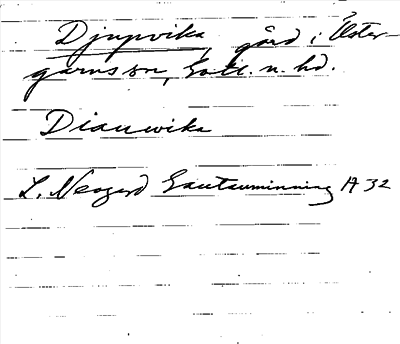 Djupvika, gård i Öster-
garns sn, Gotl. n. hd.
Diauwika
L. Neogard Gautauminning A 32